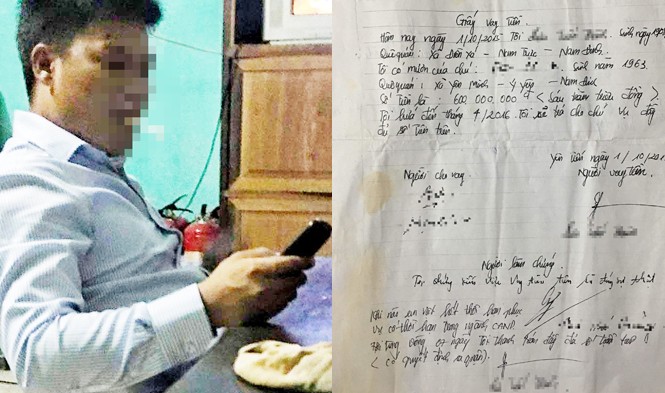 Giấy vay tiền.
Hôm nay ngày 1/10/2015 Tôi sinh ngày
Quê quán: Xã Điền Xá - Nam Trực - Nam Định.
Tôi có mượn của chú: sinh năm 1963.
Quê quán: xã Yên Minh - Ý Yên - Nam Định
Số tiền là: 600.000.000 đ < sáu trăm triệu đồng >
Tôi hứa đến tháng 4/2016. Tôi sẽ trả cho chú đầy
đủ số tiền trên.
ngày 1/10/201
Người cho vay
Người vay tiền.
Người làm chứng.
Tôi chứng kiến việc vay tiền trên là đúng sự thật
hết thời hạn phục
vụ có thời hạn trong ngành CAND.
07 ngày Tôi thanh toán đầy đủ số tiền trên
< có quyết định